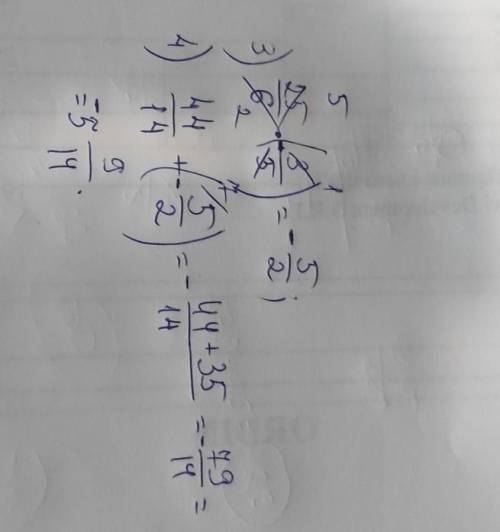 3) 25/6 · (3/5) = - 5/2;
5 2 1
4) 44/14 + (- 5/2) = - 44+35/14 = - 79/14 =
7
= -5 9/14.